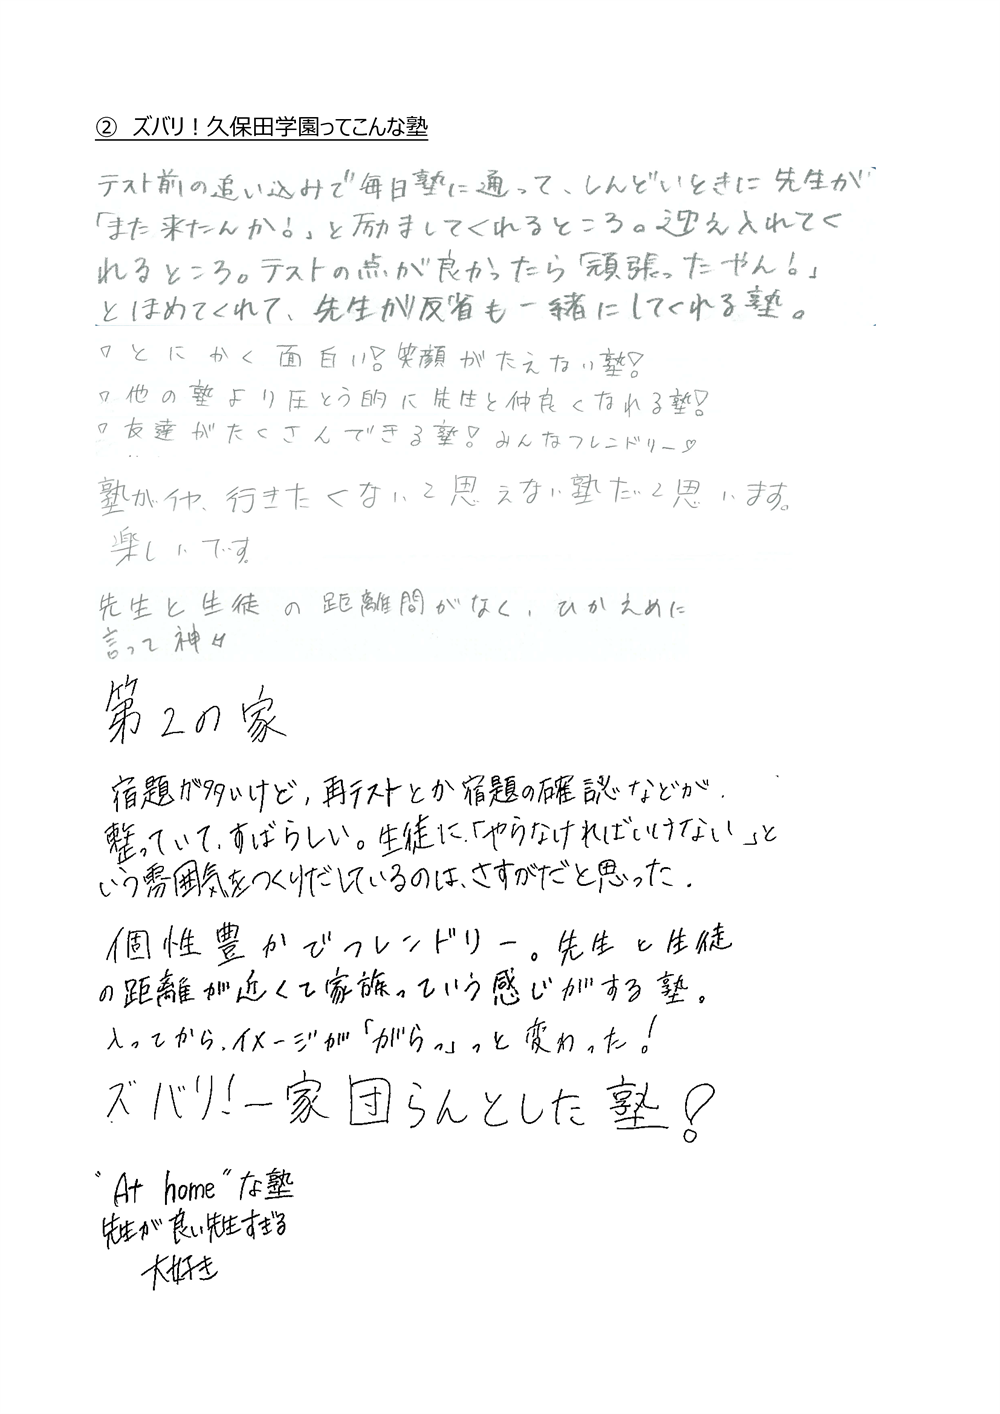 ② ズバリ！久保田学園ってこんな塾
テスト前の追い込みで毎日塾に通って、しんどいときに先生が
「また来たんか！」と励ましてくれるところ。迎え入れてく
れるところ。テストの点が良かったら「頑張ったやん！」
とほめてくれて、先生が反省も一緒にしてくれる塾。
▽ とにかく面白い！笑顔がたえない塾！
▽ 他の塾より圧とう的に先生と仲良くなれる塾！
▽ 友達がたくさんできる塾！みんなフレンドリー♡
塾がイヤ、行きたくないと思えない塾だと思います。
楽しいです。
先生と生徒の距離間がなく、ひかえめに
言って神々
第2の家
宿題が多いけど、再テストとか宿題の確認などが、
整っていて、すばらしい。生徒に、「やらなければいけない」と
いう雰囲気をつくりだしているのは、さすがだと思った.
個性豊かでフレンドリー。先生と生徒
の距離が近くて家族っていう感じがする塾。
入ってから、イメージが「がらっ」っと変わった！
ズバリ！一家団らんとした塾！
"At home"な塾
先生が良い先生すぎる
大好き